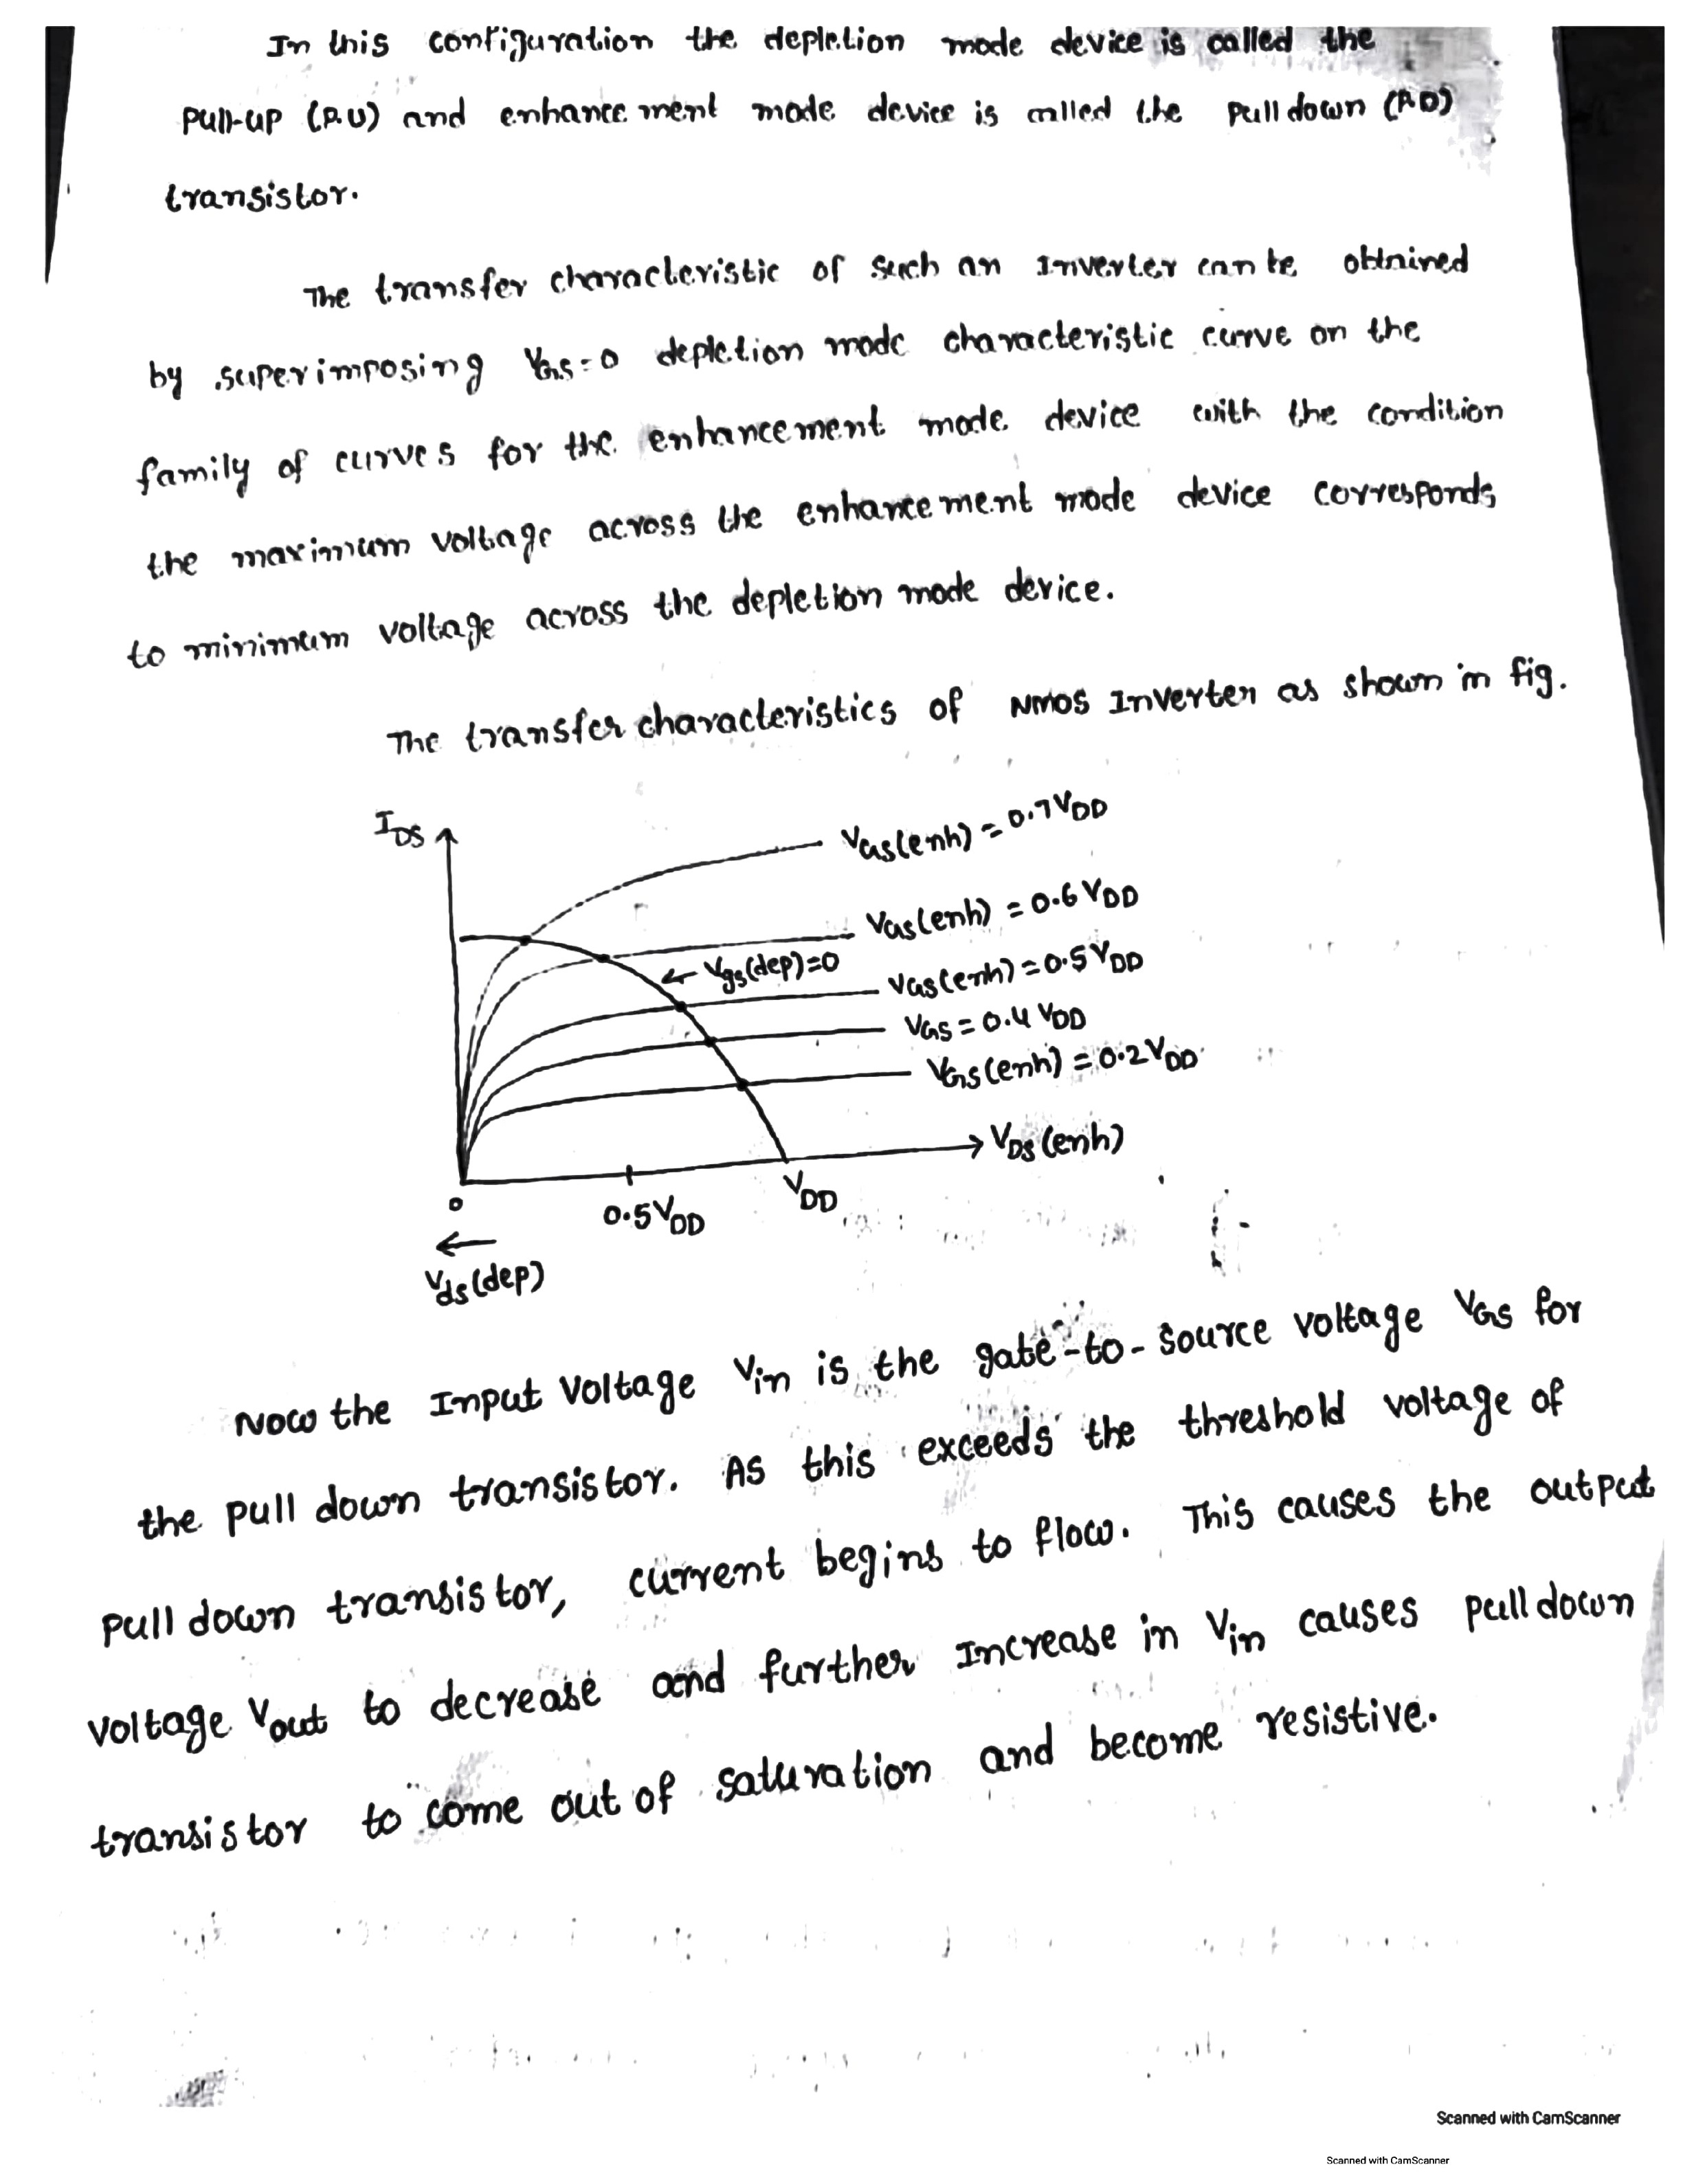 In this configuration the depletion mode device is called the
pull-up (P.U) and enhancement mode device is called the pull down (P.D)
transistor.
The transfer characteristic of such an Inverter can be obtained
by superimposing VGS=0 depletion mode characteristic curve on the
family of curves for the enhancement mode device with the condition
the maximum voltage across the enhancement mode device corresponds
to minimum voltage across the depletion mode device.
The transfer characteristics of NMOS Inverter as shown in fig.
IDS
VGS(enh) = 0.7VDD
VGS(enh) = 0.6 VDD
Vgs(dep)=0
VGS(enh)=0.5VDD
VGS=0.4 VDD
VGS(enh) = 0.2VDD
VDS (enh)
0
0.5VDD
VDD
Vds(dep)
Now the Input Voltage Vin is the gate-to-source voltage VGS for
the pull down transistor. As this exceeds the threshold voltage of
pull down transistor, current begins to flow. This causes the output
voltage Vout to decrease and further Increase in Vin causes pull down
transistor to come out of saturation and become resistive.
Scanned with CamScanner
Scanned with CamScanner